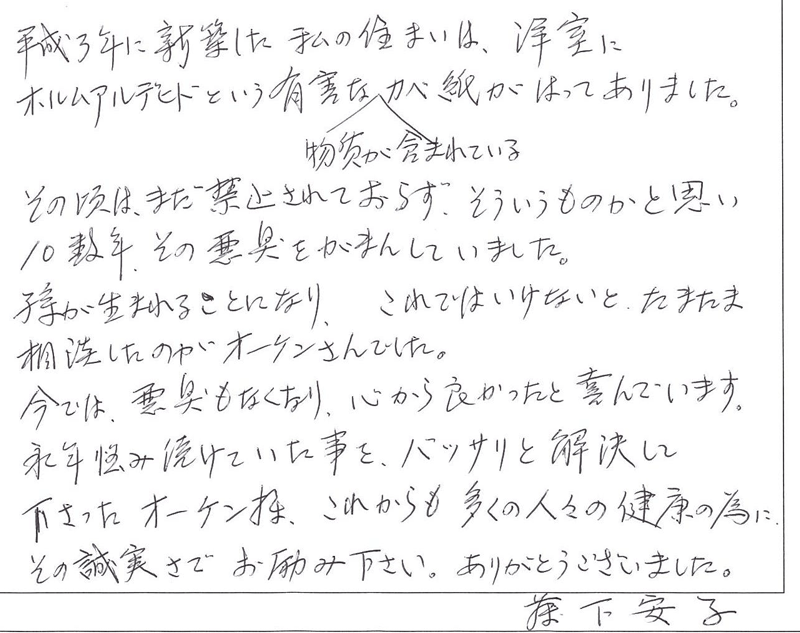 平成3年に新築した私の住まいは、洋室に
ホルムアルデヒドという有害なカベ紙がはってありました。
物質が含まれている
その頃は、まだ禁止されておらず、そういうものかと思い
10数年、その悪臭をがまんしていました。
孫が生まれることになり、これではいけないと、たまたま
相談したのがオーケンさんでした。
今では、悪臭もなくなり、心から良かったと喜んでいます。
永年悩み続けていた事を、バッサリと解決して
下さったオーケン様、これからも多くの人々の健康の為に、
その誠実さでお励み下さい。ありがとうございました。
下安子